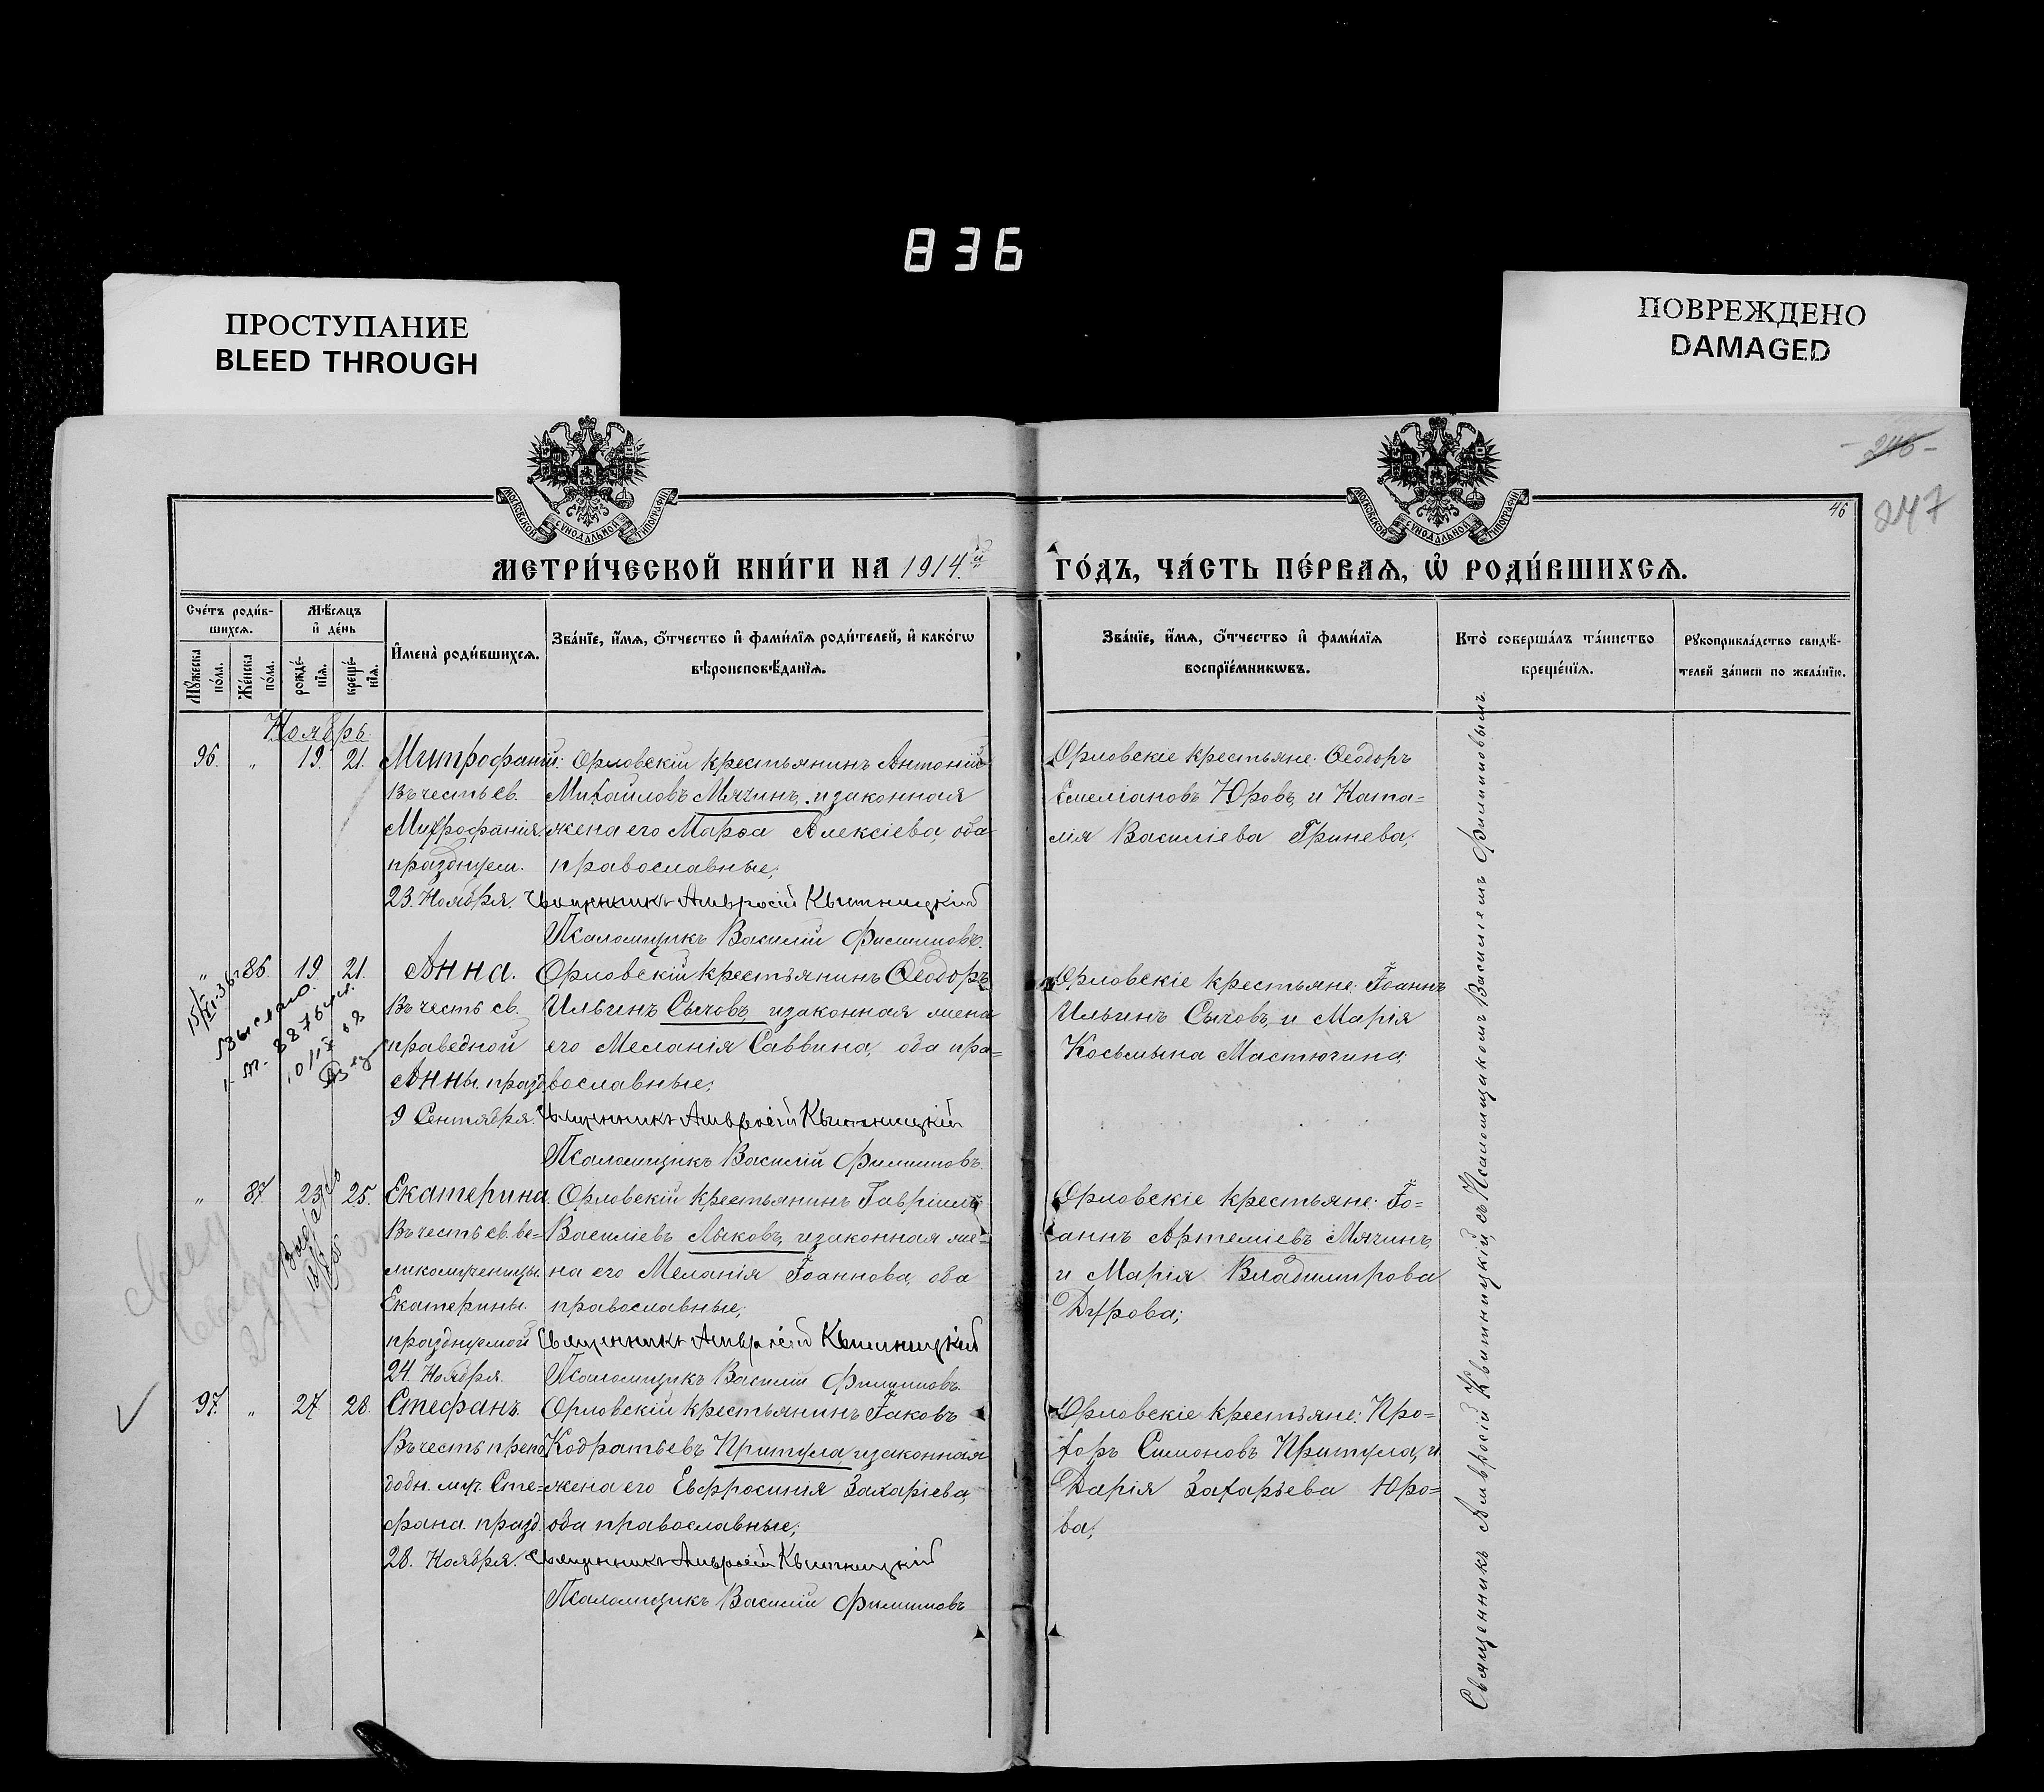 836
ПРОСТУПАНИЕ
BLEED THROUGH
ПОВРЕЖДЕНО
DAMAGED
МОСКОВСКОЙ СѴНОДАЛЬНОЙ ТИПОГРАФІИ
МОСКОВСКОЙ СѴНОДАЛЬНОЙ ТИПОГРАФІИ
- 246 -
247
46
МЕТРИ́ЧЕСКОЙ КНИ́ГИ НА 1914.й
ГО́ДЪ, ЧА́СТЬ ПЕ́РВАѦ, Ѡ РОДИ́ВШИХСѦ.
Сче́тъ роди́в-
шихсѧ.
Мꙋ́жеска по́ла.
Же́нска по́ла.
Мѣ́сѧцъ
и҆ де́нь
рожде́-
нїѧ.
креще́-
нїѧ.
И҆мена̀ роди́вшихсѧ.
Зва́нїе, и҆́мѧ, ѻ҆́тчество и҆ фами́лїѧ роди́телей, и҆ како́гѡ
вѣроисповѣ́данїѧ.
Зва́нїе, и҆́мѧ, ѻ҆́тчество и҆ фами́лїѧ
воспрїе́мникѡвъ.
Кто̀ соверша́лъ та́инство
креще́нїѧ.
Рꙋкоприкла́дство свидѣ́-
телей за́писи по жела́нїю.
Ноябрь.
96. „ 19. 21. Митрофаній:
Въ честь св.
Митрофанія
празднуем.
23. Ноября.
Орловскій крестьянинъ Антоній
Михайловъ Мячинъ, и законная
жена его Марѳа Алексіева, оба
православные;
Священникъ Амвросій Квитницкій
Псаломщикъ Василій Филиповъ.
Орловскіе крестьяне: Ѳеодоръ
Емеліановъ Юровъ, и Ната=
лія Василіева Гринева;
„ 86. 19. 21. Анна.
Въ честь св.
праведной
Анны. празд
9 Сентября.
Орловскій крестьянинъ Ѳеодоръ
Ильинъ Сычовъ, и законная жена
его Меланія Саввина, оба пра=
вославные;
Священникъ Амвросій Квитницкій
Псаломщикъ Василій Филиповъ.
Орловскіе крестьяне: Іоаннъ
Ильинъ Сычовъ, и Марія
Косьмина Мастюгина;
„ 87. 23. 25. Екатерина.
Въ честь св. ве=
ликомученицы
Екатерины.
празднуемой
24. Ноября.
Орловскій крестьянинъ Гавріилъ
Василіевъ Лыковъ, и законная же=
на его Меланія Іоаннова, оба
православные;
Священникъ Амвросій Квитницкій
Псаломщикъ Василій Филиповъ.
Орловскіе крестьяне: Іо=
аннъ Артеміевъ Мячинъ,
и Марія Владимирова
Дурова;
97. „ 27. 28. Стефанъ.
Въ честь препо
добн. муч. Сте=
фана. празд.
28. Ноября.
Орловскій крестьянинъ Іаковъ
Кодратьевъ Притула, и законная
жена его Евфросинія Захаріева,
оба православные;
Священникъ Амвросій Квитницкій
Псаломщикъ Василій Филиповъ
Орловскіе крестьяне: Про=
хоръ Симоновъ Притула, и
Дарія Захарьева Юро=
ва;
Священникъ Амвросій Квитницкій, съ Псаломщикомъ Василіемъ Филиповымъ.